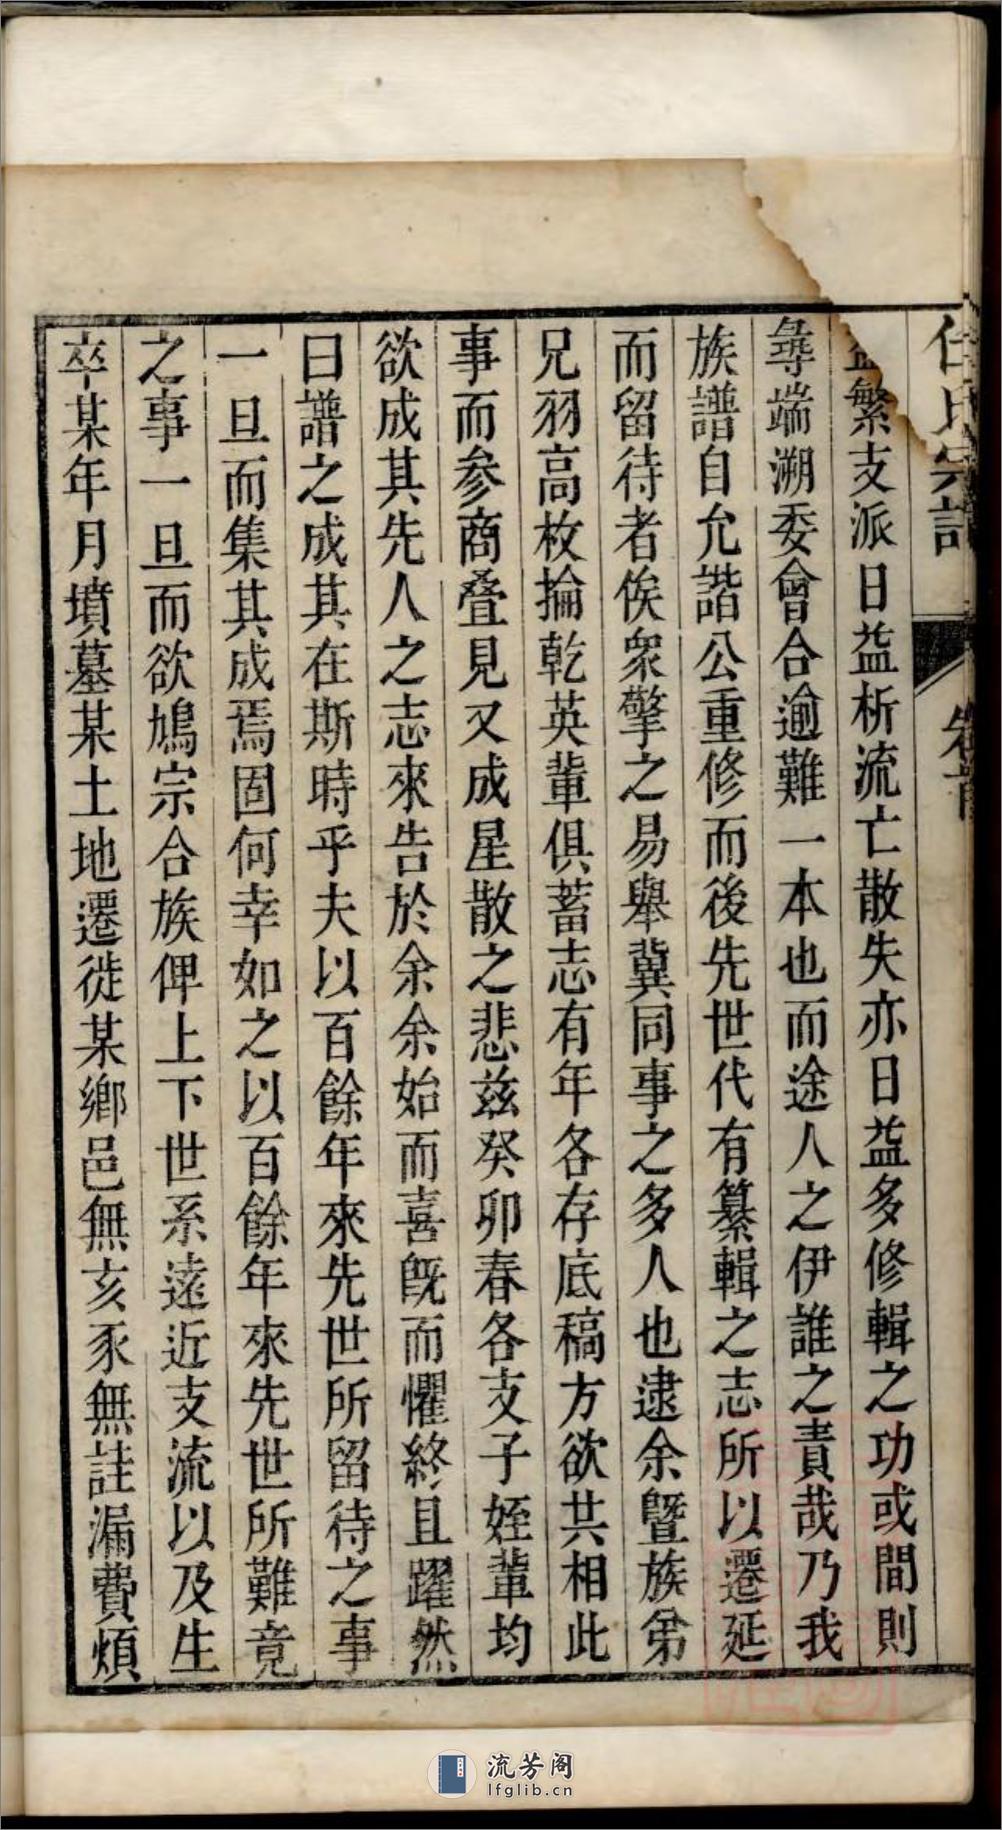 任氏宗譜
卷首
益繁支派日益析流亡散失亦日益多修輯之功或間則
尋端溯委會合逾難一本也而途人之伊誰之責哉乃我
族譜自允諧公重修而後先世代有纂輯之志所以遷延
而留待者俟衆擎之易舉冀同事之多人也逮余暨族弟
兄羽高枚掄乾英輩俱蓄志有年各存底稿方欲共相此
事而參商叠見又成星散之悲茲癸卯春各支子姪輩均
欲成其先人之志來告於余余始而喜旣而懼終且躍然
曰譜之成其在斯時乎夫以百餘年來先世所留待之事
一旦而集其成焉固何幸如之以百餘年來先世所難竟
之事一旦而欲鳩宗合族俾上下世系遠近支流以及生
卒某年月墳墓某土地遷徙某鄉邑無亥豕無註漏費煩
流芳阁
lfglib.cn